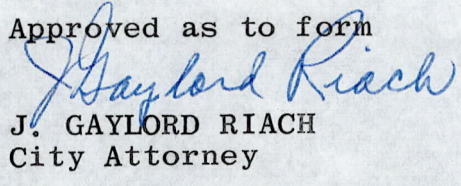 Approved as to form
J Gaylord Riach
J. GAYLORD RIACH
City Attorney